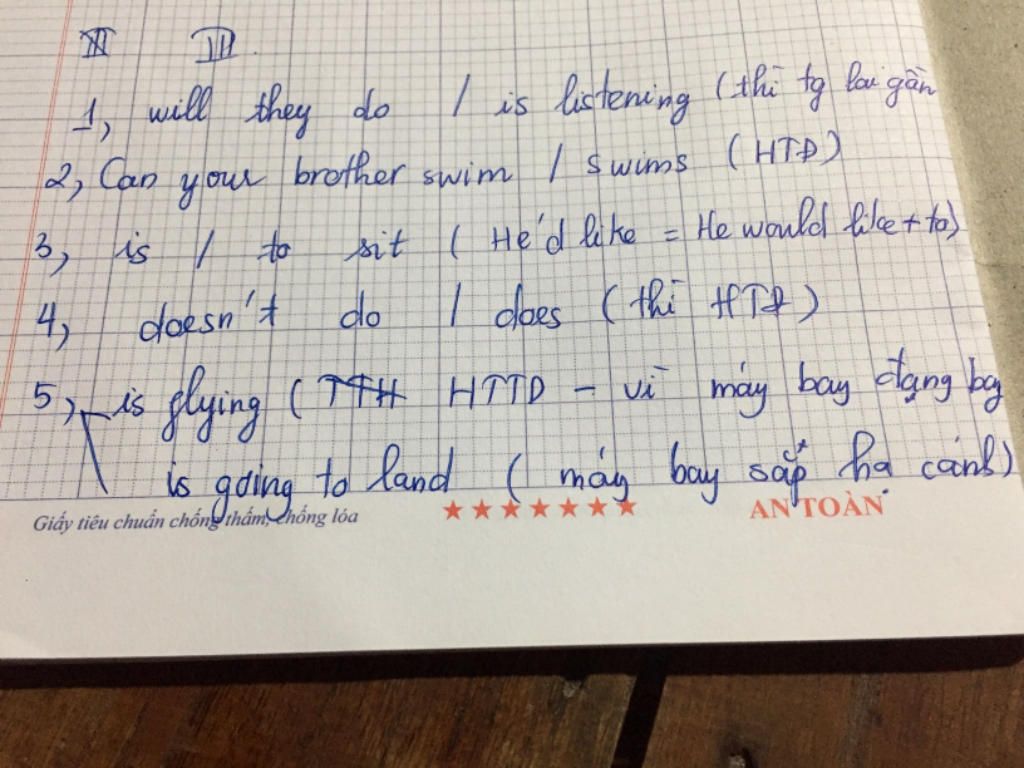 III.
1, will they do / is listening (thì tg lai gần
2, Can your brother swim / swims (HTĐ)
3, is / to sit (He'd like = He would like + to)
4, doesn't do / does (thì HTĐ)
5, is flying (TTH HTTD - vì máy bay đạng bay
is going to land (máy bay sắp hạ cánh)
Giấy tiêu chuẩn chống thấm, chống lóa ★★★★★★★ AN TOÀN